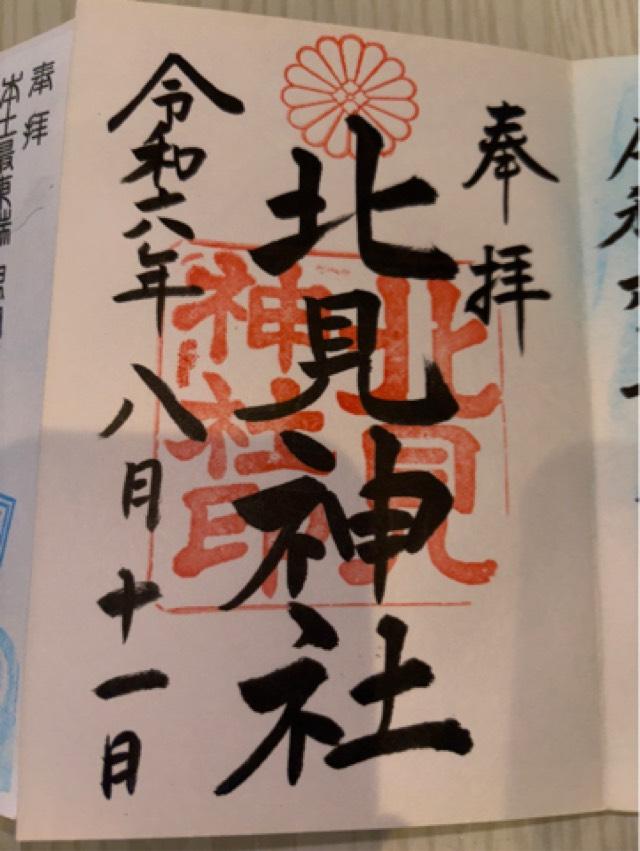 奉拝
北見神社
北見
神社印
令和六年 八月十一日
奉拝
本土最東端